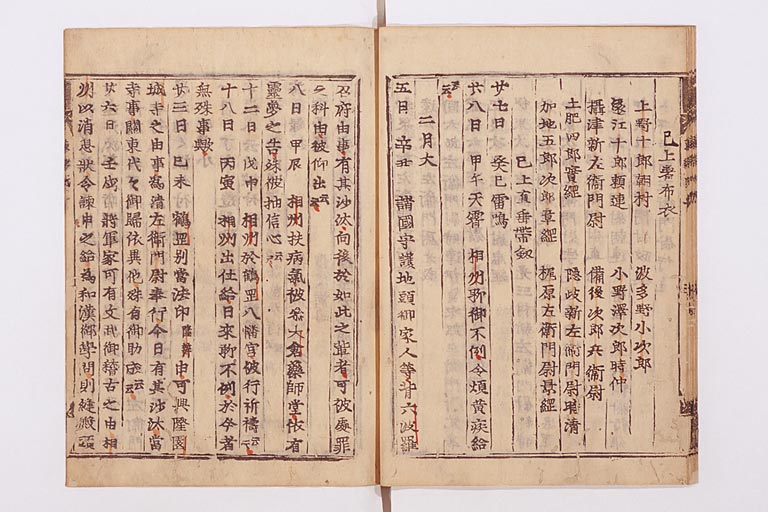 已上着布衣
上野十郎朝村　波多野小次郎
遠江十郎頼連　小野澤次郎時仲
攝津新左衛門尉　備後次郎兵衛尉
土肥四郎實經　隠岐新左衛門尉時清
加地五郎次郎章經　梶原左衛門尉景經
已上直垂帶劔
廿七日　癸巳雷鳴
廿八日　甲午天霽　相州聊御不例今煩黄疾給
云云
二月大
五日　辛丑　諸國守護地頭御家人等背六波羅
召府由事有其沙汰向後於如此之輩者可被處罪
之科由被仰出云云
八日　甲辰　相州扶病氣被参大倉藥師堂依有
靈夢之告殊被抽信心云云
十二日　戊申　相州於鶴罡八幡宮被行祈禱云云
十八日　丙寅　相州出仕給日來聊不例於今者
無殊事歟
廿三日　己未　鶴罡別當法印隆辨申可興隆園
城寺之由事為清左衛門尉奉行今日有其沙汰當
寺事關東代々御歸依異他殊有御助成云云
廿六日　壬戌　將軍家可有文武御稽古之由相
州以消息状令諫申之給為和漢御學問則縫殿